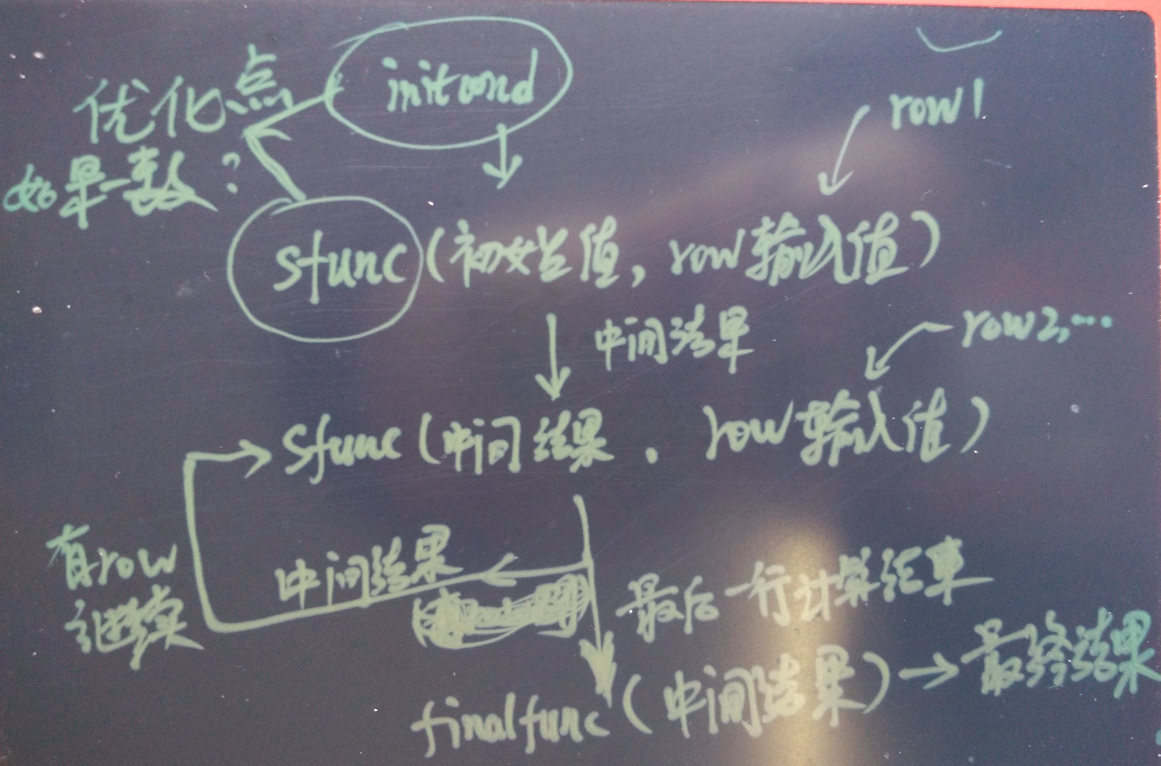 优化点
如果一致?
initcond
row1
sfunc(初始值, row输入值)
中间结果
row2,...
sfunc(中间结果, row输入值)
有row
继续
中间结果
最后一行计算结束
finalfunc(中间结果)→最终结果